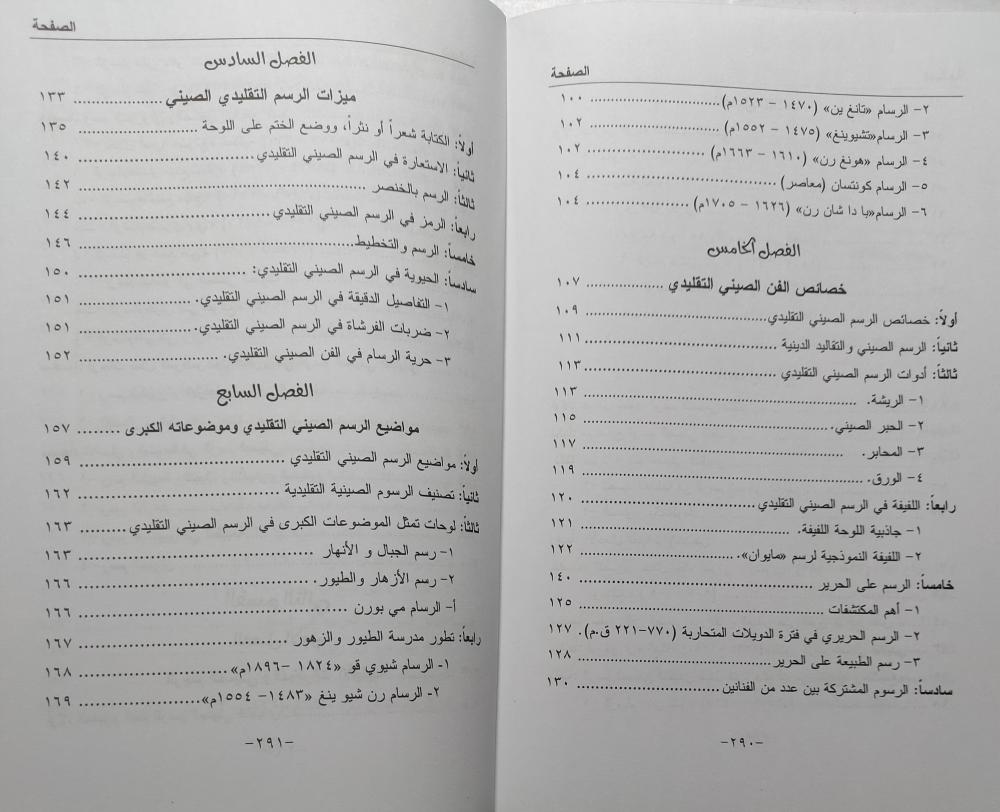 الصفحة
٢- الرسام «تانغ ين» (١٤٧٠ - ١٥٢٣م) ........ ١٠٠
٣- الرسام«تشيوينغ» (١٤٧٥ - ١٥٥٢م) ........ ١٠٢
٤- الرسام «هونغ رن» (١٦١٠ - ١٦٦٣م) ........ ١٠٢
٥- الرسام كونتسان (معاصر) ........ ١٠٤
٦- الرسام«با دا شان رن» (١٦٢٦ - ١٧٠٥م) ........ ١٠٤
الفصل الخامس
خصائص الفن الصيني التقليدي ........ ١٠٧
أولاً: خصائص الرسم الصيني التقليدي ........ ١٠٩
ثانياً: الرسم الصيني والتقاليد الدينية ........ ١١١
ثالثاً: أدوات الرسم الصيني التقليدي ........ ١١٣
١- الريشة. ........ ١١٣
٢- الحبر الصيني. ........ ١١٥
٣- المحابر. ........ ١١٧
٤- الورق. ........ ١١٩
رابعاً: اللفيفة في الرسم الصيني التقليدي ........ ١٢٠
١- جاذبية اللوحة اللفيفة. ........ ١٢١
٢- اللفيفة النموذجية لرسم «مايوان». ........ ١٢٢
خامساً: الرسم على الحرير ........ ١٤٠
١- أهم المكتشفات ........ ١٢٥
٢- الرسم الحريري في فترة الدويلات المتحاربة (٧٧٠-٢٢١ ق.م). ١٢٧
٣- رسم الطبيعة على الحرير ........ ١٢٨
سادساً: الرسوم المشتركة بين عدد من الفنانين ........ ١٣٠
-٢٩٠-
الصفحة
الفصل السادس
ميزات الرسم التقليدي الصيني ........ ١٣٣
أولاً: الكتابة شعراً أو نثراً، ووضع الختم على اللوحة ........ ١٣٥
ثانياً: الاستعارة في الرسم الصيني التقليدي ........ ١٤٠
ثالثاً: الرسم بالخنصر ........ ١٤٢
رابعاً: الرمز في الرسم الصيني التقليدي ........ ١٤٤
خامساً: الرسم والتخطيط ........ ١٤٦
سادساً: الحيوية في الرسم الصيني التقليدي: ........ ١٥٠
١- التفاصيل الدقيقة في الرسم الصيني التقليدي. ........ ١٥١
٢- ضربات الفرشاة في الرسم الصيني التقليدي. ........ ١٥١
٣- حرية الرسام في الفن الصيني التقليدي. ........ ١٥٢
الفصل السابع
مواضيع الرسم الصيني التقليدي وموضوعاته الكبرى ........ ١٥٧
أولاً: مواضيع الرسم الصيني التقليدي ........ ١٥٩
ثانياً: تصنيف الرسوم الصينية التقليدية ........ ١٦٢
ثالثاً: لوحات تمثل الموضوعات الكبرى في الرسم الصيني التقليدي ........ ١٦٣
١- رسم الجبال و الأنهار ........ ١٦٣
٢- رسم الأزهار والطيور. ........ ١٦٦
أ- الرسام مي بورن ........ ١٦٦
رابعاً: تطور مدرسة الطيور والزهور ........ ١٦٧
١- الرسام شيوي قو «١٨٢٤ -١٨٩٦م» ........ ١٦٨
٢- الرسام رن شيو ينغ «١٤٨٣- ١٥٥٤م» ........ ١٦٩
-٢٩١-